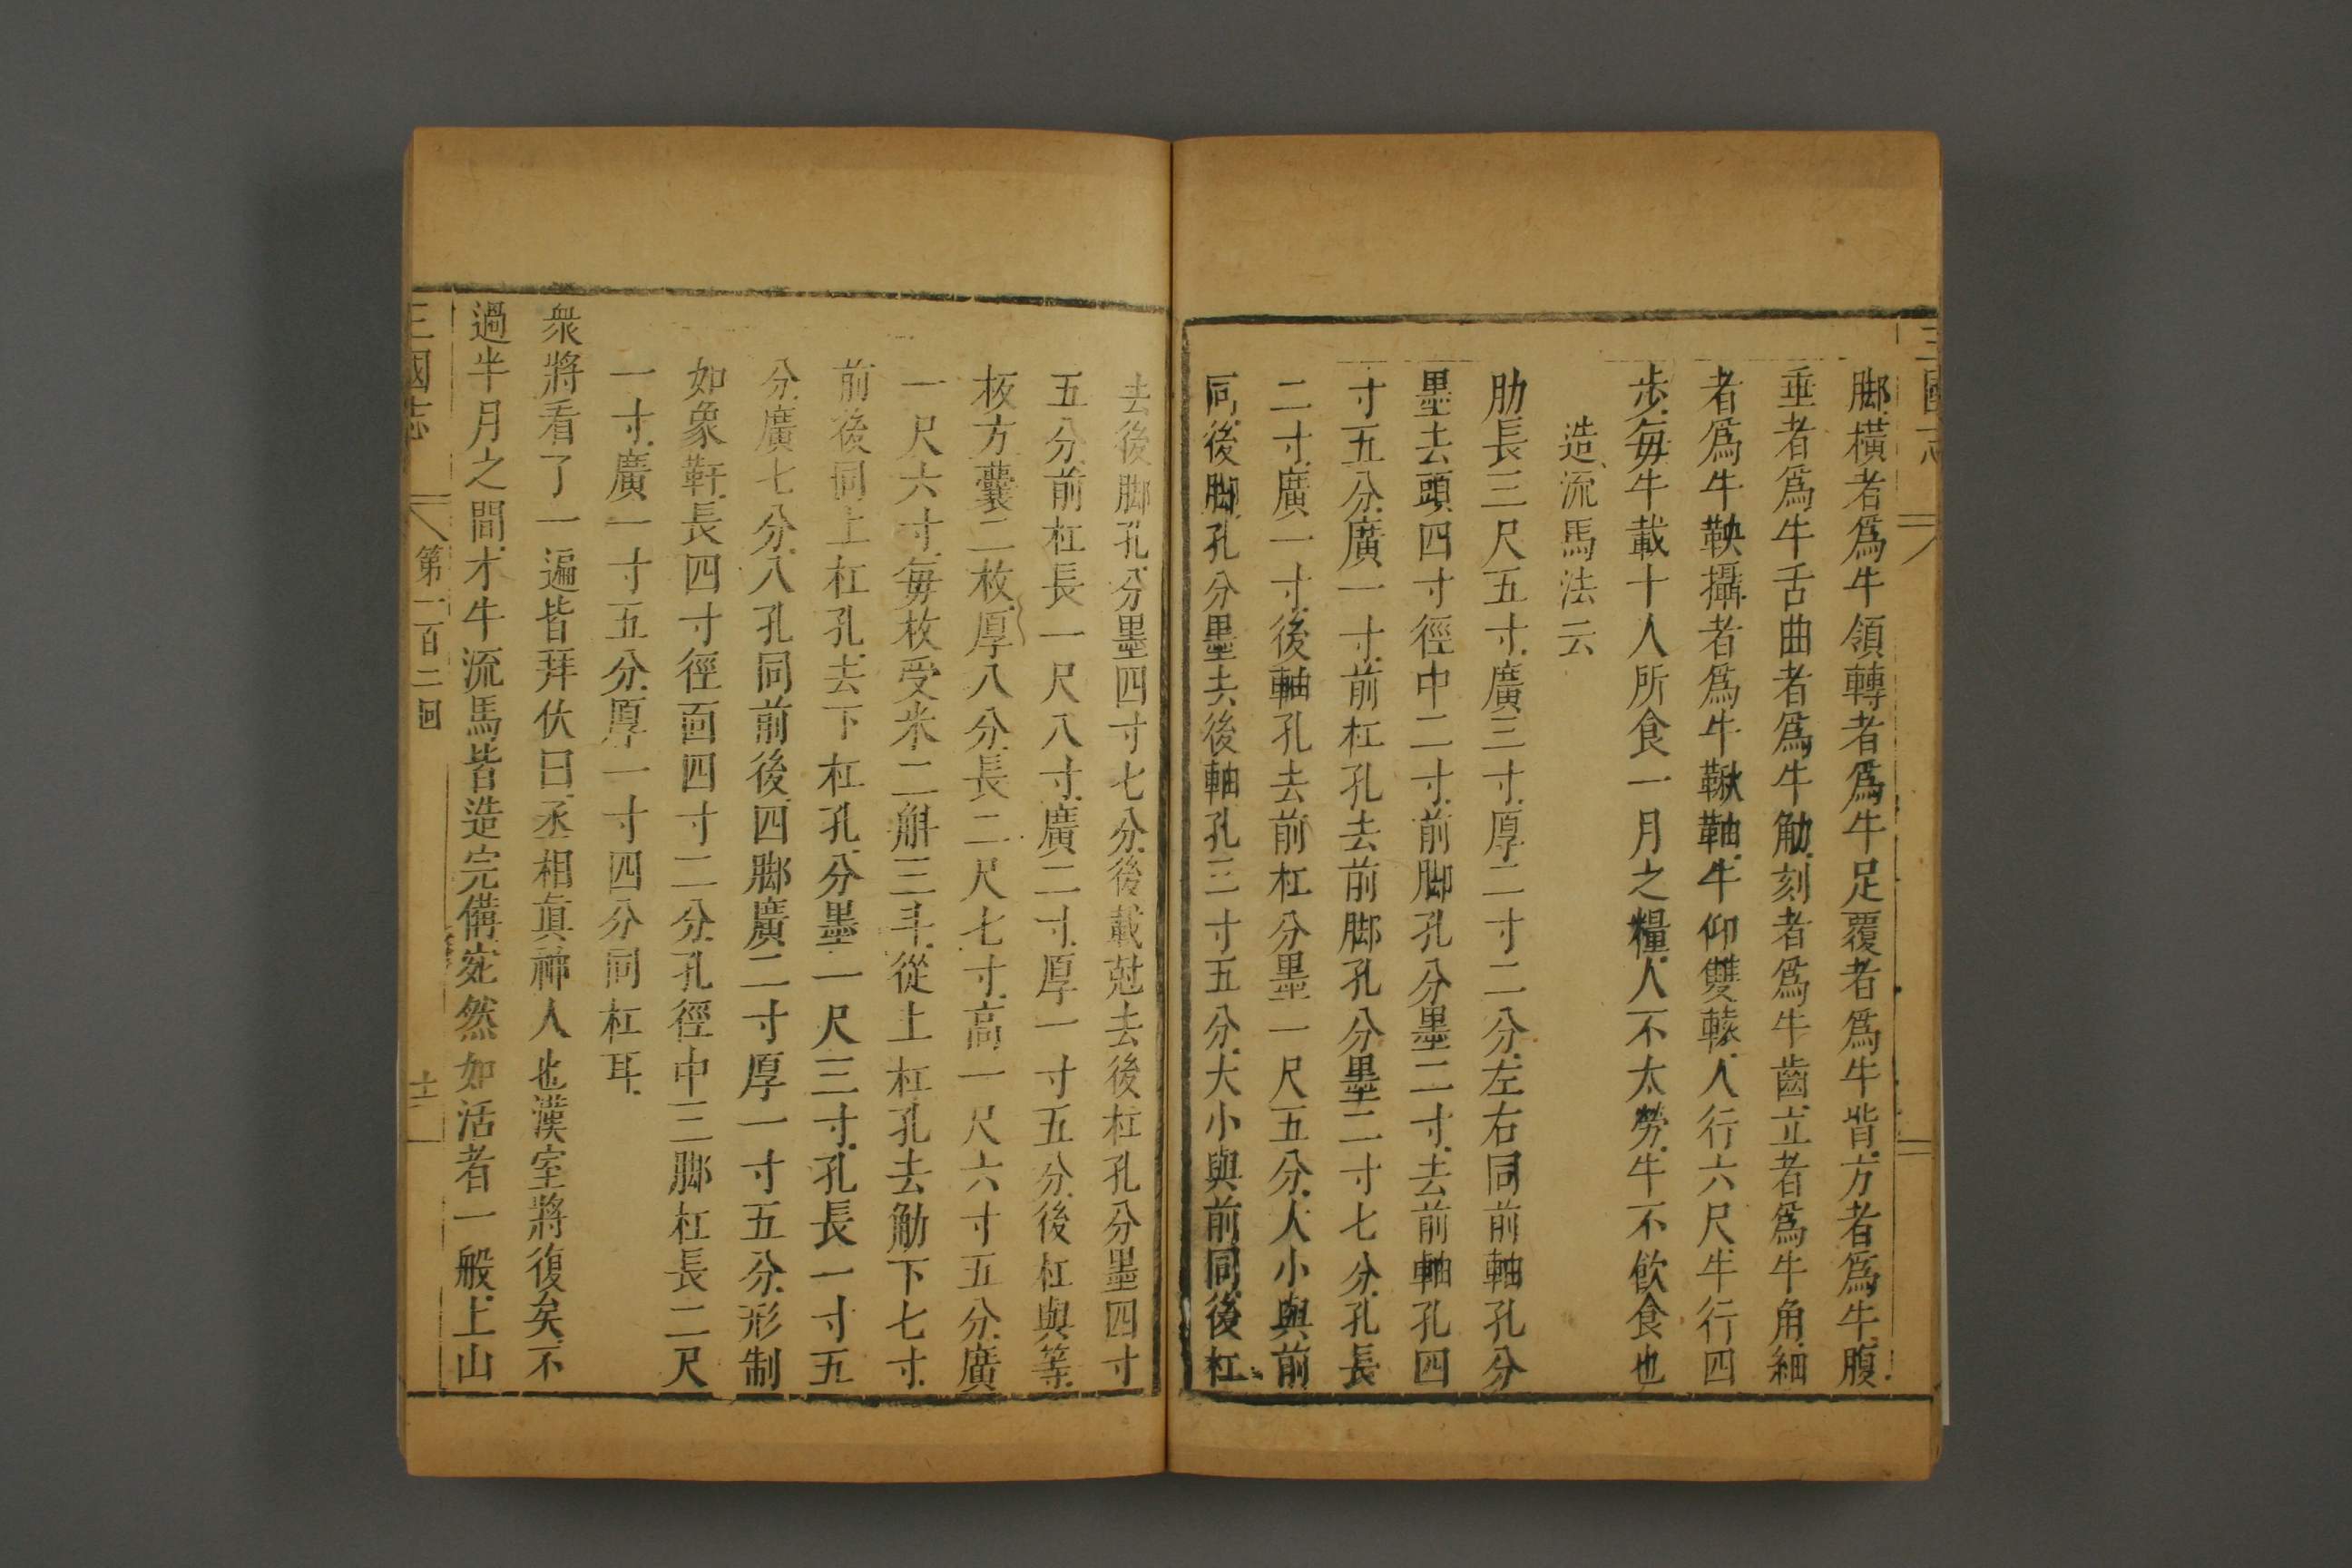 三國志
脚橫者爲牛領轉者爲牛足覆者爲牛背方者爲牛腹
垂者爲牛舌曲者爲牛觔刻者爲牛齒立者爲牛角細
者爲牛鞅攝者爲牛鞦軸牛仰雙轅人行六尺牛行四
步每牛載十人所食一月之糧人不太勞牛不飲食也
造流馬法云
肋長三尺五寸廣三寸厚二寸二分左右同前軸孔分
墨去頭四寸徑中二寸前脚孔分墨二寸去前軸孔四
寸五分廣一寸前杠孔去前脚孔分墨二寸七分孔長
二寸廣一寸後軸孔去前杠分墨一尺五分大小與前
同後脚孔分墨去後軸孔三寸五分大小與前同後杠
去後脚孔分墨四寸七分後載尅去後杠孔分墨四寸
五分前杠長一尺八寸廣二寸厚一寸五分後杠與等
板方囊二枚厚八分長二尺七寸高一尺六寸五分廣
一尺六寸每枚受米二斛三斗從上杠孔去觔下七寸
前後同上杠孔去下杠孔分墨一尺三寸孔長一寸五
分廣七分八孔同前後四脚廣二寸厚一寸五分形制
如象靬長四寸徑面四寸二分孔徑中三脚杠長二尺
一寸廣一寸五分厚一寸四分同杠耳
衆將看了一遍皆拜伏曰丞相眞神人也漢室將復矣不
過半月之間木牛流馬皆造完備宛然如活者一般上山
三國志
第一百二回
十二